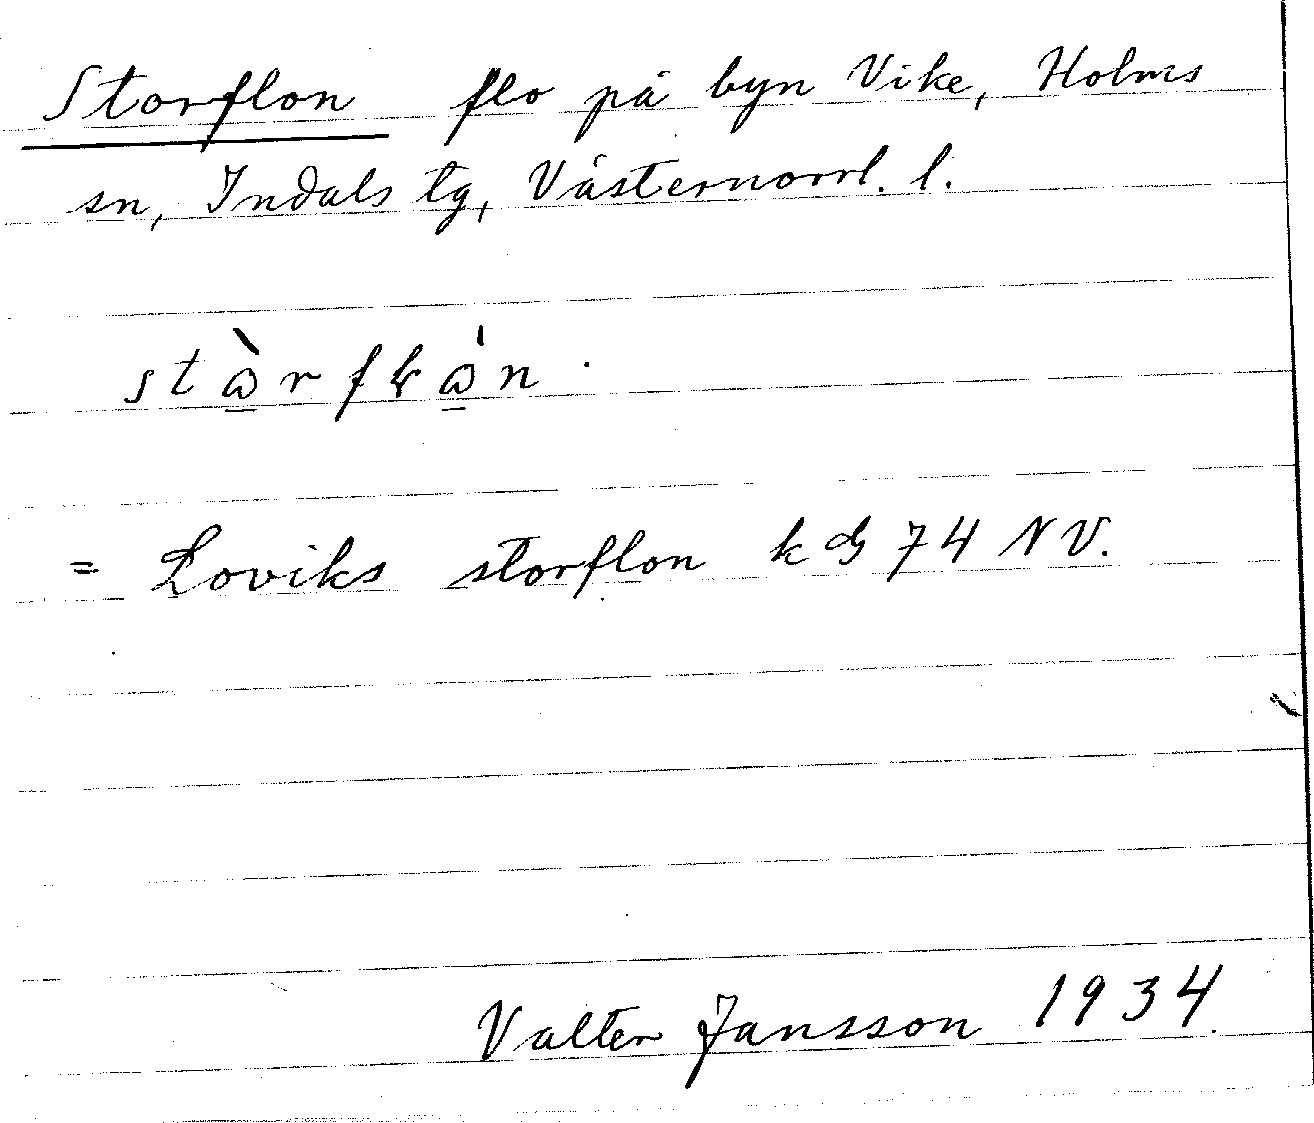 Storflon flo på byn Vike, Holms
sn, Indals tg, Västernorrl. l.
= Loviks storflon k G 74 NV.
Valter Jansson 1934.